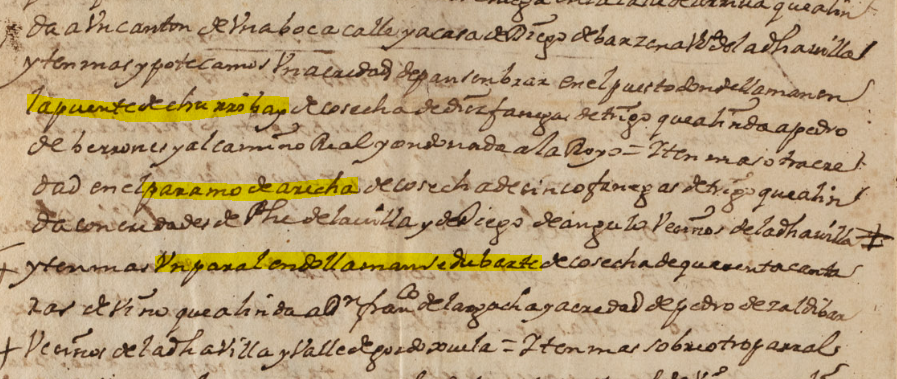 da a Vn canton de Vna boca calle y a casa de Diego de barzena Vº de la dha villa
y ten mas ypotecamos Vna eredad de pan senbrar en el puesto donde llaman en
la puente de churrobay de cosecha de diez fanegas de trigo que alinda a pedro
de berrones y al camino Real y ondonada a la Royo = Iten mas otra ere
dad en el paramo de aricha de cosecha de cinco fanegas de trigo que alin
da con eredades de Phe de la villa y de Diego de angulo Vecinos de la dha villa
y ten mas Vn paral en do llaman sedubarte de cosecha de quarenta canta
ras de Vino que alinda a Dn franco de y a eredad de pedro de zaldibar
Vecinos de la dha Villa y Valle de gordoxuela = Iten mas sobre otro parral